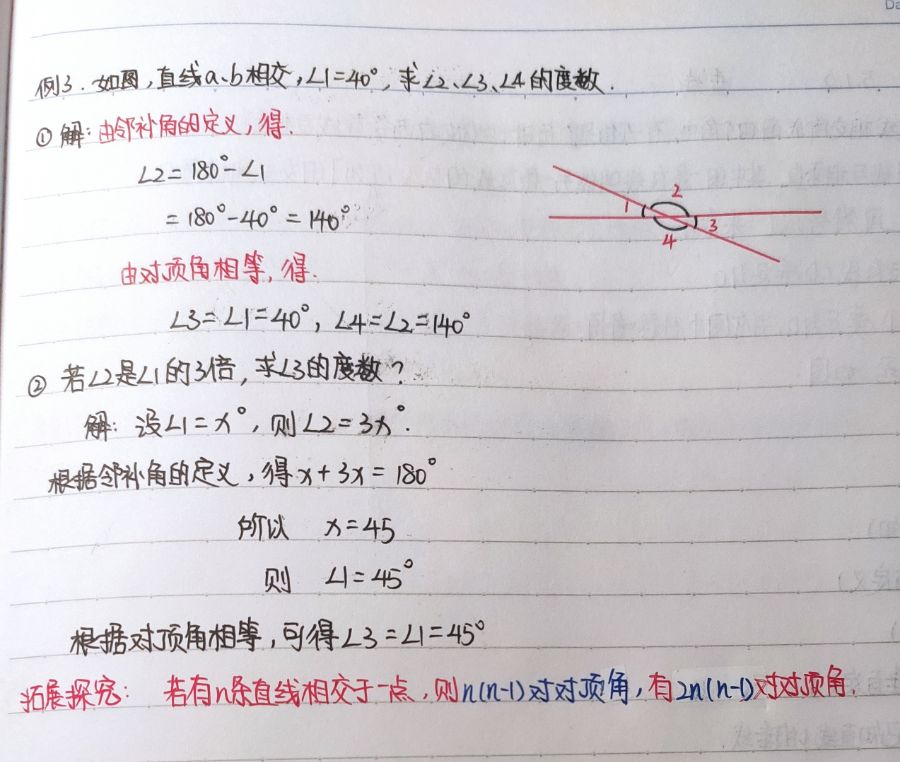 Da
例3. 如图,直线a、b相交,∠1=40°,求∠2、∠3、∠4的度数.
① 解: 由邻补角的定义,得.
∠2=180°-∠1
=180°-40°=140°
由对顶角相等,得.
∠3=∠1=40°,∠4=∠2=140°
1
2
3
4
② 若∠2是∠1的3倍,求∠3的度数?
解: 设∠1=x°,则∠2=3x°.
根据邻补角的定义,得x+3x=180°
所以 x=45
则 ∠1=45°
根据对顶角相等,可得∠3=∠1=45°
拓展探究: 若有n条直线相交于一点,则n(n-1)对对顶角,有2n(n-1)对对顶角.